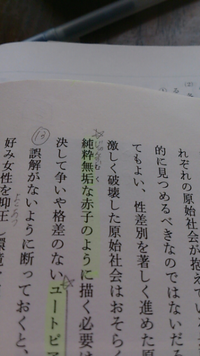 れぞれの原始社会が抱えてい
的に見つめるべきなのではないだ
てもよい、性差別を著しく進めた原
激しく破壊した原始社会はおそら
純粋無垢な赤子のように描く必要は
むく
決して争いや格差のないユートピア
⑬
誤解がないように断っておくと、
好み女性を抑圧し環境